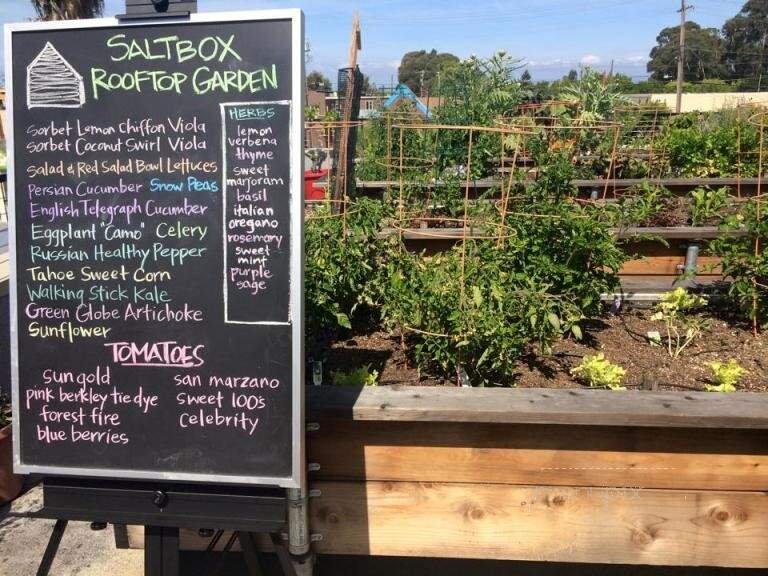 SALTBOX
ROOFTOP GARDEN
Sorbet Lemon Chiffon Viola
Sorbet Coconut Swirl Viola
Salad & Red Salad Bowl Lettuces
Persian Cucumber Snow Peas
English Telegraph Cucumber
Eggplant "Camo" Celery
Russian Healthy Pepper
Tahoe Sweet Corn
Walking Stick Kale
Green Globe Artichoke
Sunflower
HERBS
lemon
verbena
thyme
sweet
marjoram
basil
italian
oregano
rosemary
sweet
mint
purple
sage
TOMATOES
sungold
pink berkley tie dye
forest fire
blue berries
san marzano
sweet 100's
celebrity